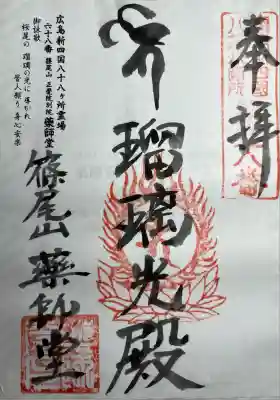 奉拝
瑠璃光殿
篠尾山 薬師堂
広島新四国八十八ヶ所霊場
六十八番 篠尾山 正覚院別院 薬師堂
御詠歌
桜尾の 瑠璃の光に 導かれ
誓人頼り 身心安楽